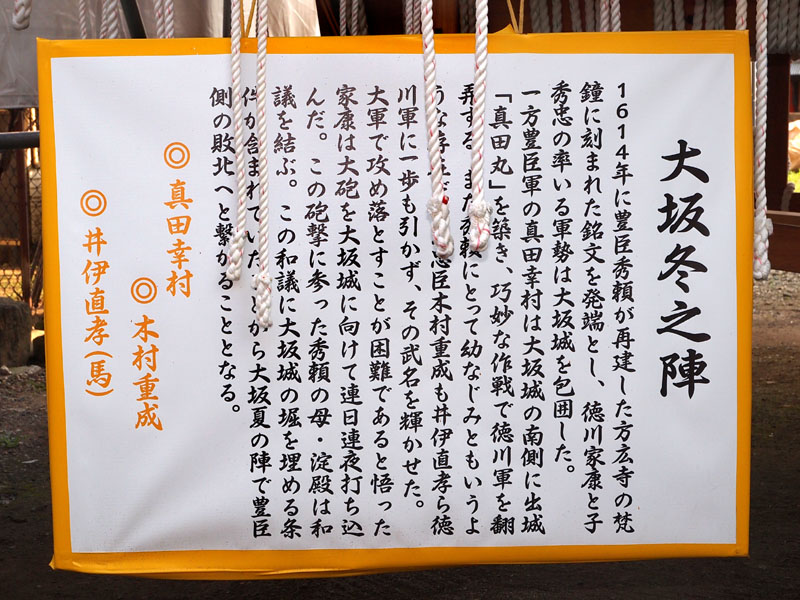 大坂冬之陣
1614年に豊臣秀頼が再建した方広寺の梵
鐘に刻まれた銘文を発端とし、徳川家康と子
秀忠の率いる軍勢は大坂城を包囲した。
一方豊臣軍の真田幸村は大坂城の南側に出城
「真田丸」を築き、巧妙な作戦で徳川軍を翻
弄する また秀頼にとって幼なじみともいうよ
うな 忠臣木村重成も井伊直孝ら徳
川軍に一歩も引かず、その武名を輝かせた。
大軍で攻め落とすことが困難であると悟った
家康は大砲を大坂城に向けて連日連夜打ち込
んだ。この砲撃に参った秀頼の母・淀殿は和
議を結ぶ。この和議に大坂城の堀を埋める条
件が含まれていた から大坂夏の陣で豊臣
側の敗北へと繋がることとなる。
◎真田幸村
◎木村重成
◎井伊直孝(馬)